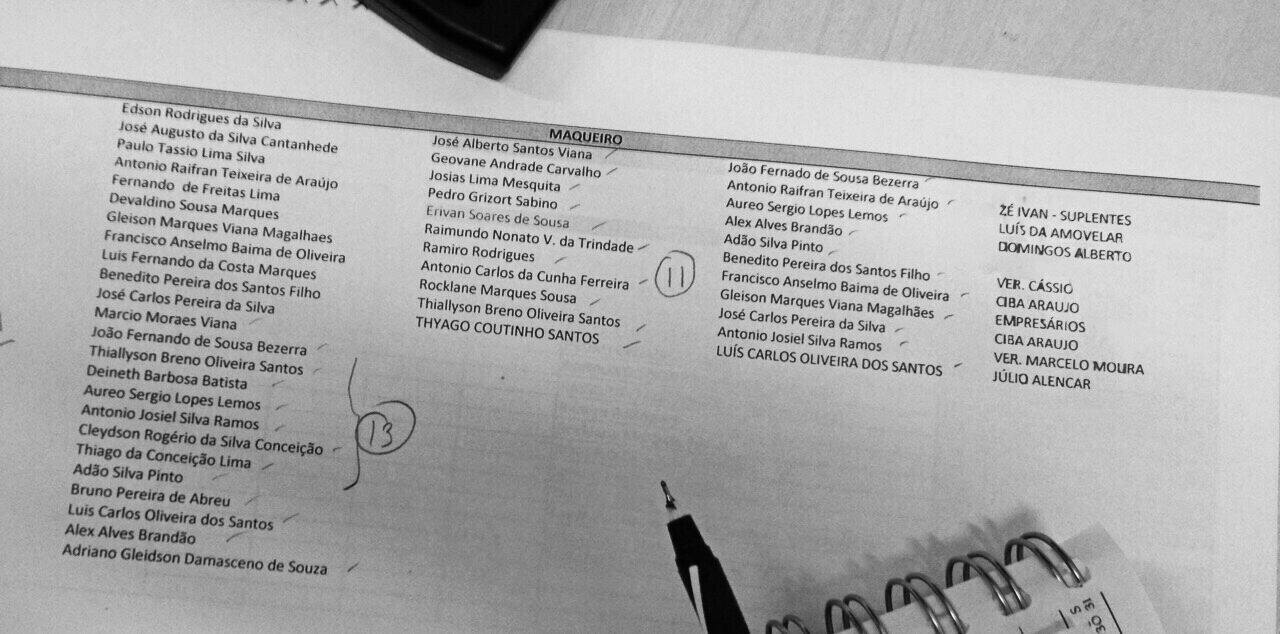 MAQUEIRO
Edson Rodrigues da Silva
José Augusto da Silva Cantanhede
Paulo Tassio Lima Silva
Antonio Raifran Teixeira de Araújo
Fernando de Freitas Lima
Devaldino Sousa Marques
Gleison Marques Viana Magalhaes
Francisco Anselmo Baima de Oliveira
Luis Fernando da Costa Marques
Benedito Pereira dos Santos Filho
José Carlos Pereira da Silva
Marcio Moraes Viana
João Fernando de Sousa Bezerra
Thiallyson Breno Oliveira Santos
Deineth Barbosa Batista
Aureo Sergio Lopes Lemos
Antonio Josiel Silva Ramos
Cleydson Rogério da Silva Conceição
Thiago da Conceição Lima
Adão Silva Pinto
Bruno Pereira de Abreu
Luis Carlos Oliveira dos Santos
Alex Alves Brandão
Adriano Gleidson Damasceno de Souza
13
José Alberto Santos Viana
Geovane Andrade Carvalho
Josias Lima Mesquita
Pedro Grizort Sabino
Erivan Soares de Sousa
Raimundo Nonato V. da Trindade
Ramiro Rodrigues
Antonio Carlos da Cunha Ferreira
Rocklane Marques Sousa
Thiallyson Breno Oliveira Santos
THYAGO COUTINHO SANTOS
11
João Fernado de Sousa Bezerra
Antonio Raifran Teixeira de Araújo
Aureo Sergio Lopes Lemos
Alex Alves Brandão
Adão Silva Pinto
Benedito Pereira dos Santos Filho
Francisco Anselmo Baima de Oliveira
Gleison Marques Viana Magalhães
José Carlos Pereira da Silva
Antonio Josiel Silva Ramos
LUÍS CARLOS OLIVEIRA DOS SANTOS
ZÉ IVAN - SUPLENTES
LUÍS DA AMOVELAR
DOMINGOS ALBERTO
VER. CÁSSIO
CIBA ARAUJO
EMPRESÁRIOS
CIBA ARAUJO
VER. MARCELO MOURA
JÚLIO ALENCAR
S
30 31